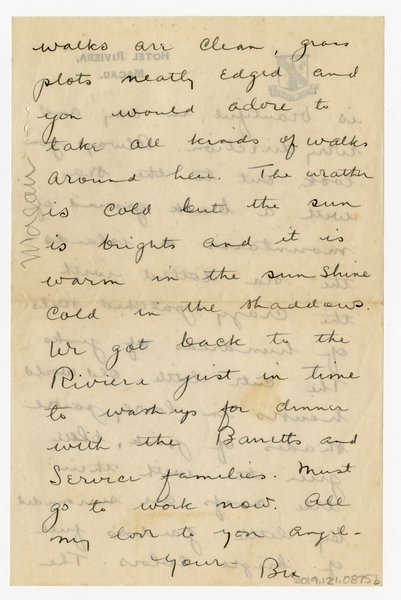 walks are clean, grass
plots neatly edged and
you would adore to
take all kinds of walks
around here. The weather
is cold but the sun
is brights and it is
warm in the sunshine
cold in the shaddows.
We got back to the
Riviera just in time
to wash up for dinner
with the Barretts and
Service families. Must
go to work now. All
my love to you angel-
Your- Bix
Macau
HOTEL RIVIERA,
MACAU.
2019.121.0875b